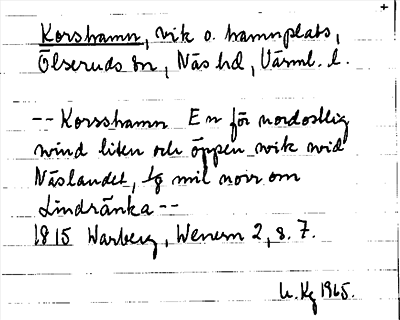 Korshamn, vik o. hamnplats,
Ölseruds sn, Näs hd, Värml. l.
-- Korsshamn En för nordostlig
wind liten och öppen wik wid
Näslandet, 1/8 mil norr om
Lindränka --
1815 Warberg, Wenern 2, s. 7.
U. Kg 1965.